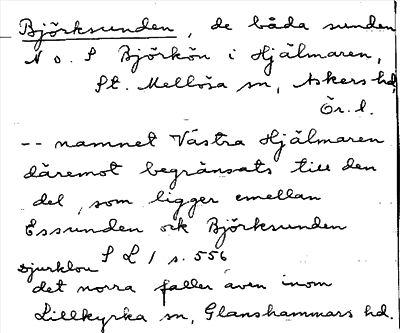 Björksunden, de båda sunden
N o. S Björkön i Hjälmaren,
St. Mellösa sn, Askers hd,
Ör. l.
-- namnet Västra Hjälmaren
däremot begränsats till den
del, som ligger emellan
Essunden och Björksunden
S L 1 s. 556
Djurklou
det norra faller även inom
Lillkyrka sn, Glanshammars hd.